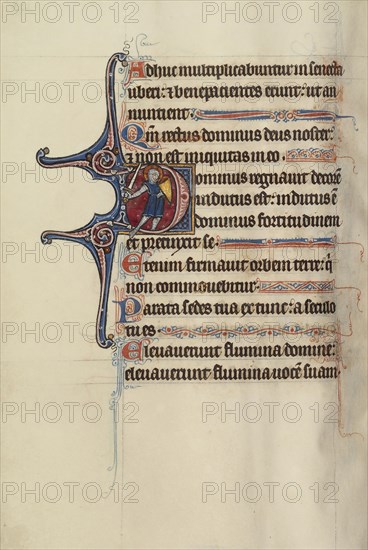 Adhuc multiplicabuntur in senecta
uberi: et bene pacientes erunt: ut an
nuntient
Qm rectus dominus deus noster:
et non est iniquitas in eo.
Dominus regnavit decorē
indutus est: indutus ē
dominus fortitudinem
et precinxit se.
Etenim firmavit orbem terre: q̄
non commovebitur.
Parata sedes tua ex tunc: a seculo
tu es.
Elevaverunt flumina domine:
elevaverunt flumina vocē suam